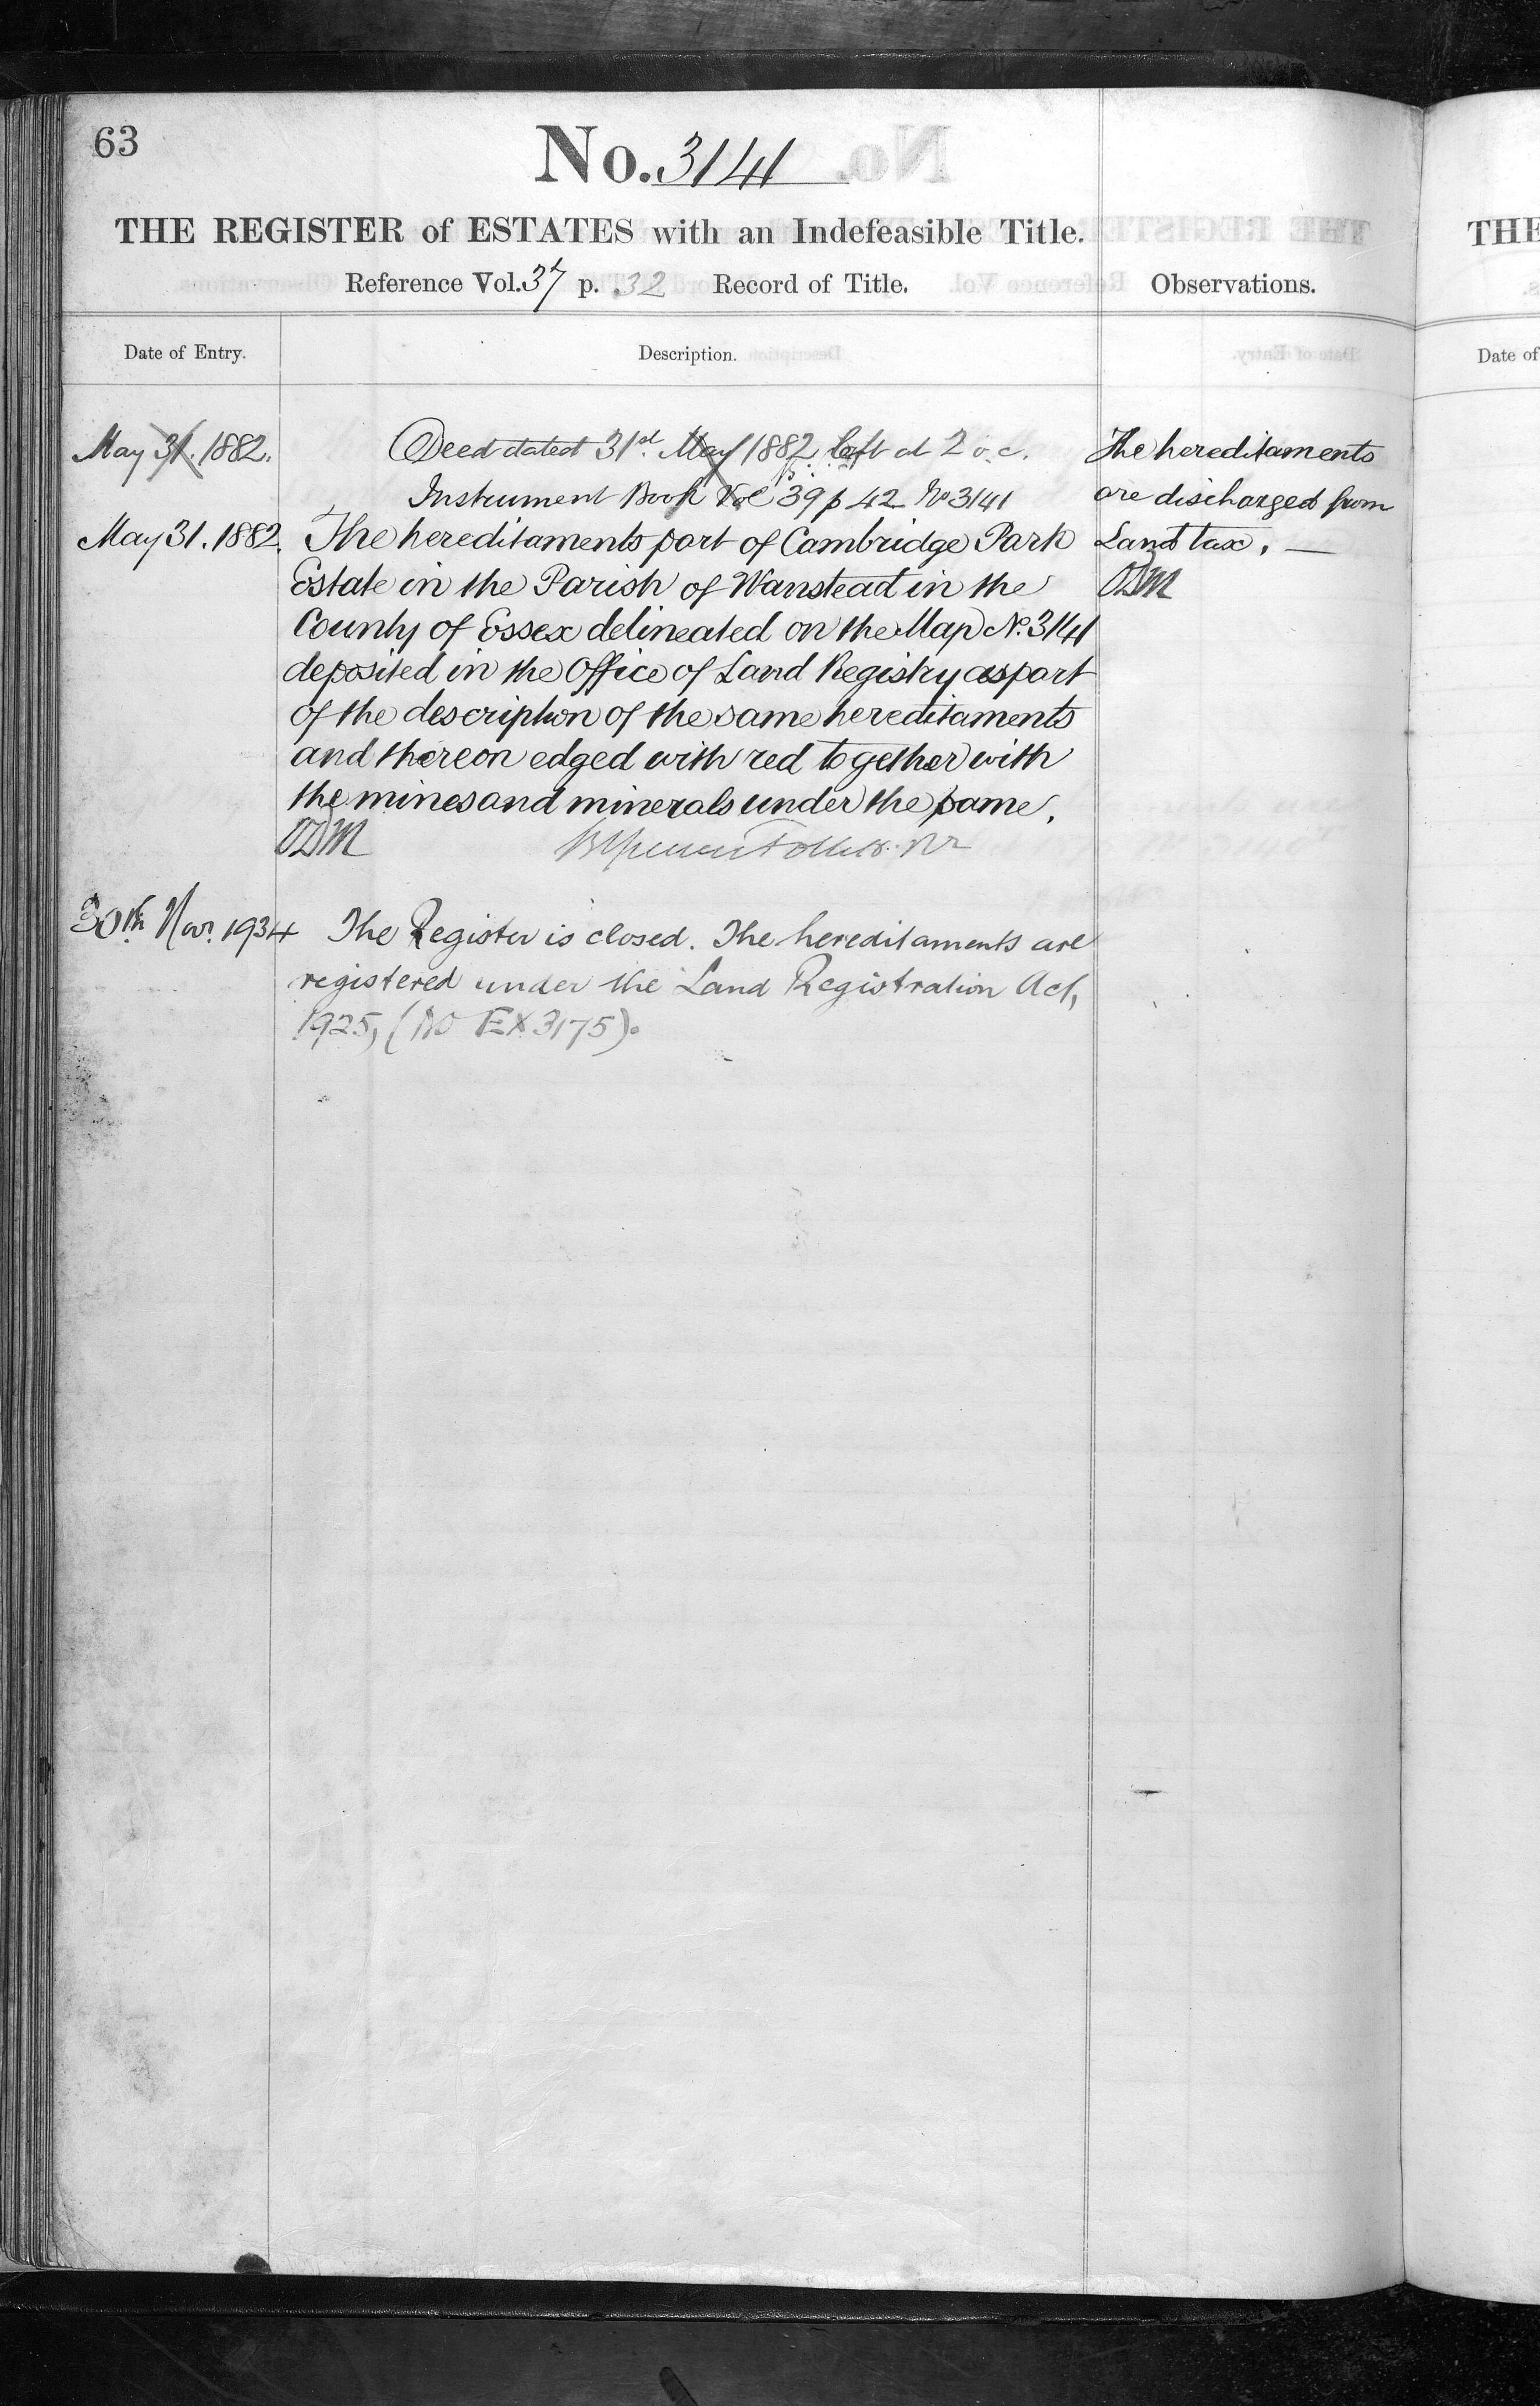 63
No. 3141
THE REGISTER of ESTATES with an Indefeasible Title.
Reference Vol. 37 p. 32 Record of Title.
Observations.
Date of Entry.
Description.
May 31. 1882.
Deed dated 31st May 1882 left at 2 o.c.
Instrument Book Vol 39 p 42 No 3141
May 31. 1882.
The hereditaments part of Cambridge Park
Estate in the Parish of Wanstead in the
County of Essex delineated on the Map No. 3141
deposited in the Office of Land Registry as part
of the description of the same hereditaments
and thereon edged with red together with
the mines and minerals under the same.
The hereditaments
are discharged from
Land tax. —
30th Nov. 1934
The Register is closed. The hereditaments are
registered under the Land Registration Act,
1925, (No EX3175).
THE
Date of